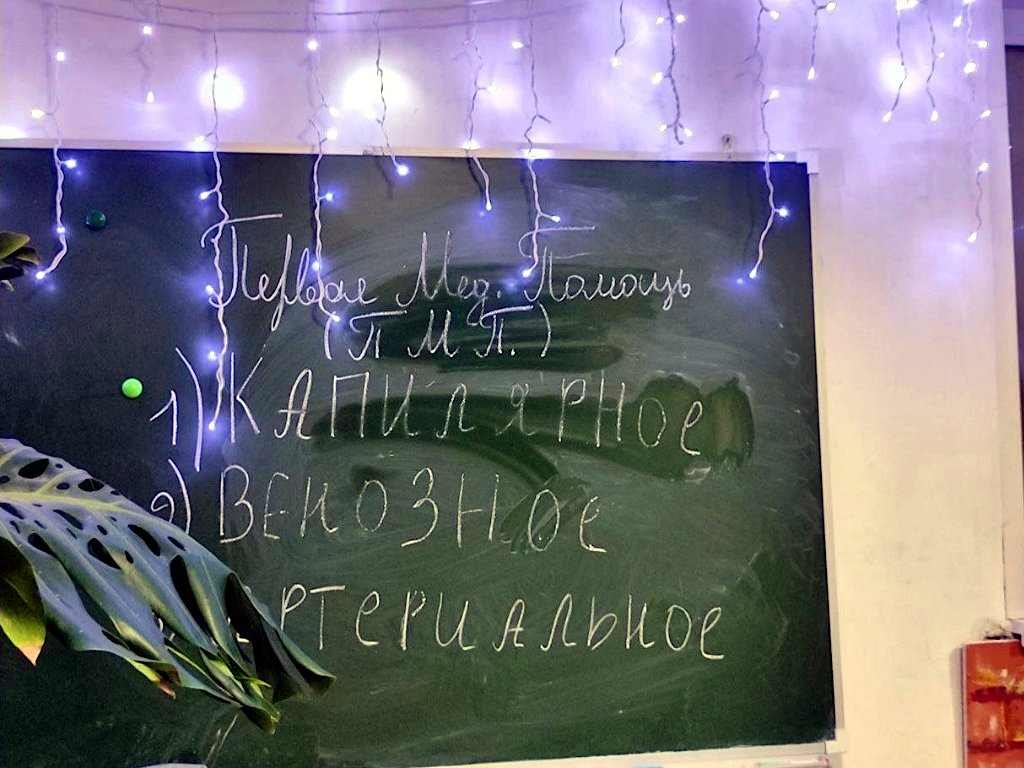 Первая Мед. Помощь
(П М П.)
1) КАПИЛЯРНОЕ
2) ВЕНОЗНОЕ
РТЕРИАЛЬНОЕ